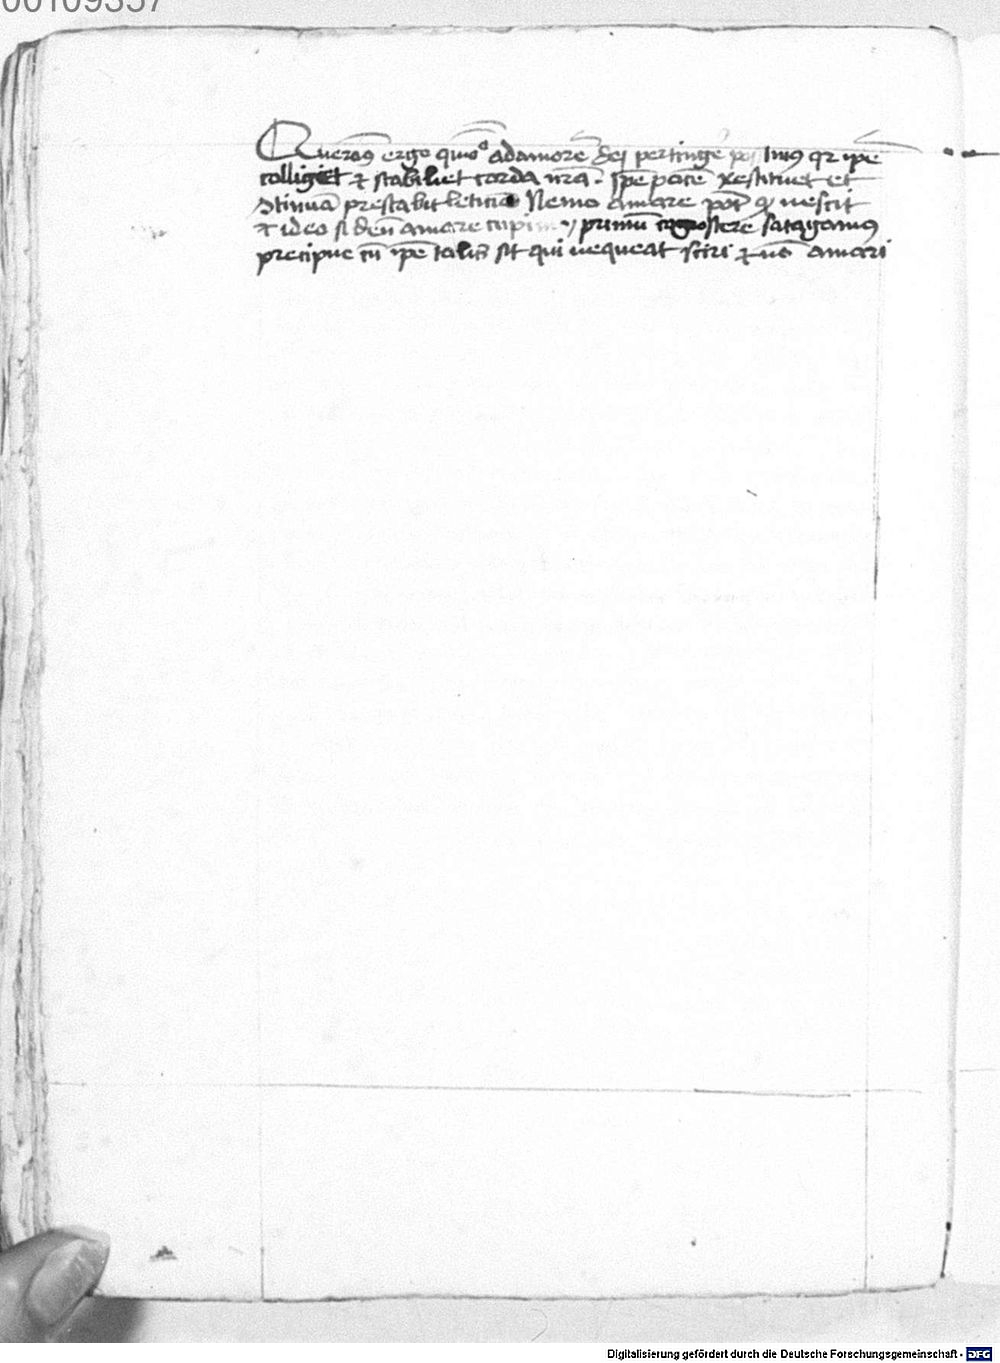 00109357
Queramus ergo quo adamorē dei pertinge̅ possimus qr ipē
colliget et stabiliet corda nrā. spē pacē restituet et
ꝯtinuā prestabit leticiā Nemo amare pot̄ qd̄ nescit
et ideo si deū amare cupimus primū cognoscere satagamus
precipue cū ipē talis sit qui nequeat sciri et nō amari
Digitalisierung gefördert durch die Deutsche Forschungsgemeinschaft - DFG